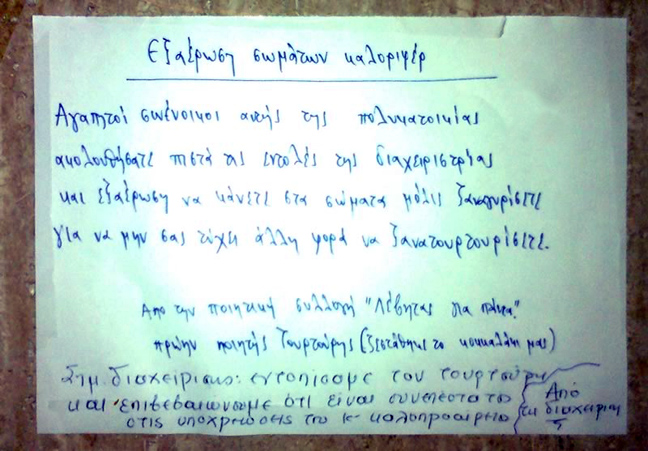 Εξαέρωση σωμάτων καλοριφέρ
Αγαπητοί συνένοικοι αυτής της πολυκατοικίας
ακολουθήσατε πιστά τις εντολές της διαχειριστρίας
και εξαέρωση να κάνετε στα σώματα μόλις ξαναγυρίσετε
για να μην σας τύχει άλλη φορά να ξανατουρτουρίσετε.
Από την ποιητική συλλογή "Λέβητας για πάντα"
πρώην ποιητής Τουρτούρης (ζεστάθηκε το κοκκαλάκι μας)
Σημ. διαχείρισης: εντοπίσαμε τον τουρτούρη
και επιβεβαιώνουμε ότι είναι συνεπέστατος
στις υποχρεώσεις του κ' καλοπροαίρετος
Από
τη διαχείριση